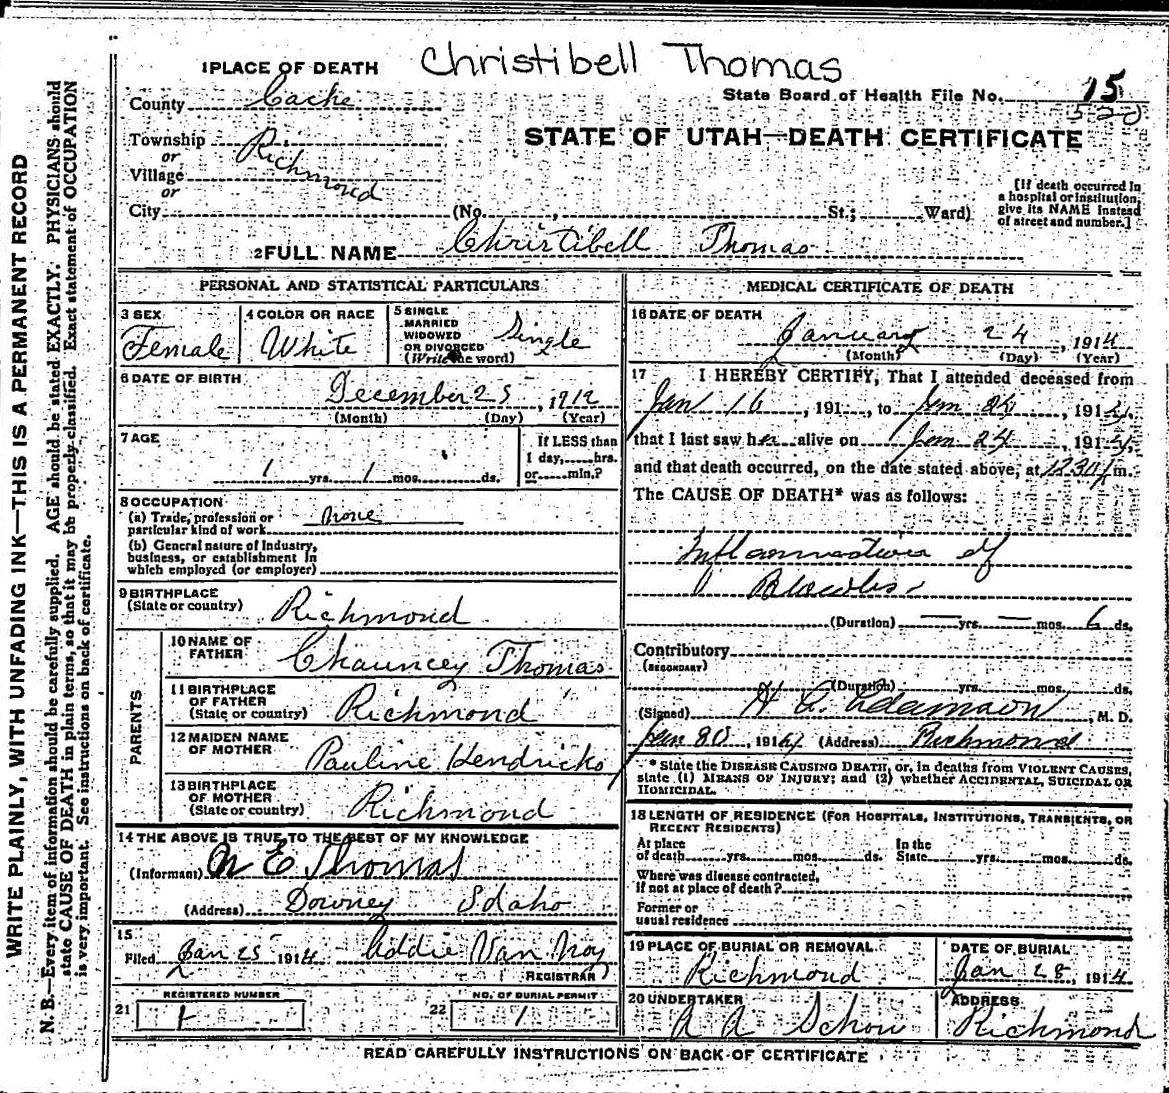 Christibell Thomas
1 PLACE OF DEATH
State Board of Health File No. 15
County Cache
STATE OF UTAH—DEATH CERTIFICATE
Township
or
Village
or
Richmond
City (No. , St.; Ward)
[If death occurred in
a hospital or institution,
give its NAME instead
of street and number.]
2 FULL NAME Christibell Thomas
PERSONAL AND STATISTICAL PARTICULARS
3 SEX
Female
4 COLOR OR RACE
White
5 SINGLE
MARRIED
WIDOWED
OR DIVORCED
(Write the word)
Single
6 DATE OF BIRTH
December 25, 1912
(Month) (Day) (Year)
7 AGE
1 yrs. 1 mos. ds.
If LESS than
1 day, hrs.
or min.?
8 OCCUPATION
(a) Trade, profession or
particular kind of work none
(b) General nature of industry,
business, or establishment in
which employed (or employer)
9 BIRTHPLACE
(State or country) Richmond
PARENTS
10 NAME OF
FATHER Chauncey Thomas
11 BIRTHPLACE
OF FATHER
(State or country) Richmond
12 MAIDEN NAME
OF MOTHER Pauline Hendricks
13 BIRTHPLACE
OF MOTHER
(State or country) Richmond
14 THE ABOVE IS TRUE TO THE BEST OF MY KNOWLEDGE
(Informant) Thomas
(Address) Downey Idaho
15
Filed Jan 25 1914 Addie Van Noy
REGISTRAR
REGISTERED NUMBER
21 1
NO. OF BURIAL PERMIT
22 1
MEDICAL CERTIFICATE OF DEATH
16 DATE OF DEATH
January 24, 1914
(Month) (Day) (Year)
17 I HEREBY CERTIFY, That I attended deceased from
Jan 16, 191 , to Jan 24, 1914,
that I last saw her alive on Jan 24 1914,
and that death occurred, on the date stated above, at 12.30 m.
The CAUSE OF DEATH* was as follows:
Inflammation of
(Duration) — yrs. — mos. 6 ds.
Contributory
(SECONDARY)
(Duration) yrs. mos. ds.
(Signed) Adamson, M. D.
Jan 30, 1914 (Address) Richmond
* State the DISEASE CAUSING DEATH, or, in deaths from VIOLENT CAUSES,
state (1) MEANS OF INJURY; and (2) whether ACCIDENTAL, SUICIDAL OR
HOMICIDAL.
18 LENGTH OF RESIDENCE (FOR HOSPITALS, INSTITUTIONS, TRANSIENTS, OR
RECENT RESIDENTS)
At place
of death yrs. mos. ds.
In the
State yrs. mos. ds.
Where was disease contracted,
if not at place of death?
Former or
usual residence
19 PLACE OF BURIAL OR REMOVAL
Richmond
DATE OF BURIAL
Jan 28, 1914
20 UNDERTAKER
Schow
ADDRESS
Richmond
READ CAREFULLY INSTRUCTIONS ON BACK OF CERTIFICATE
WRITE PLAINLY, WITH UNFADING INK—THIS IS A PERMANENT RECORD
N. B.—Every item of information should be carefully supplied. AGE should be stated EXACTLY. PHYSICIANS should
state CAUSE OF DEATH in plain terms, so that it may be properly classified. Exact statement of OCCUPATION
is very important. See instructions on back of certificate.